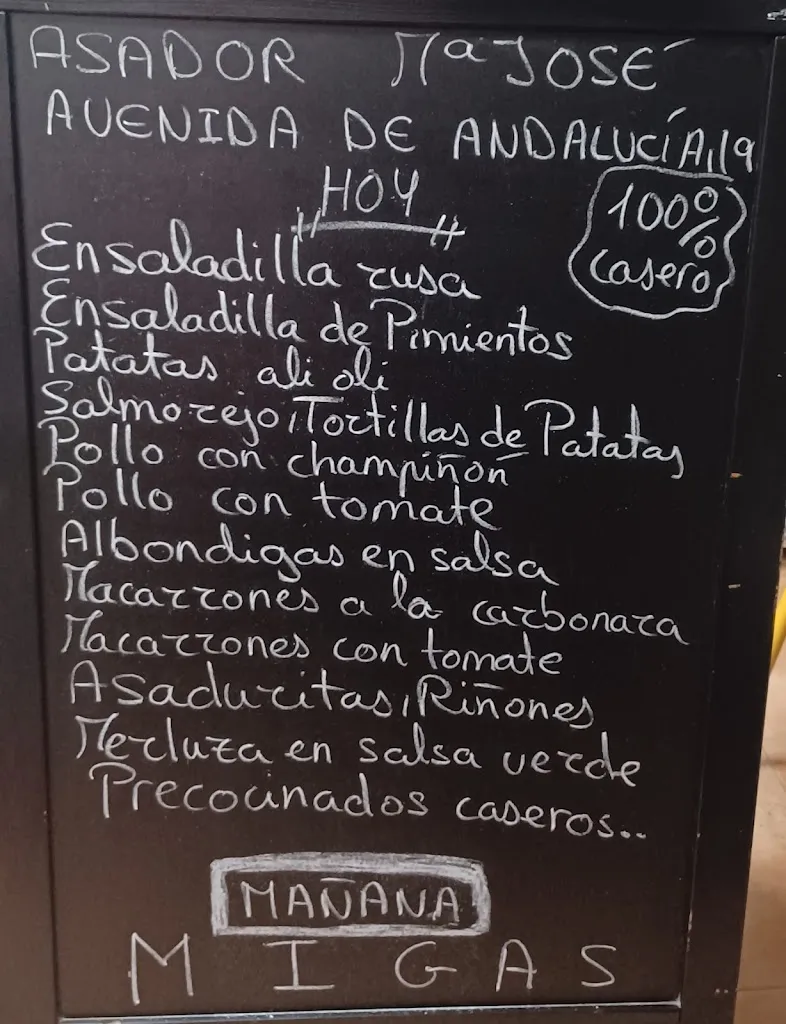 ASADOR Mª JOSÉ
AVENIDA DE ANDALUCÍA, 19
HOY
100%
casero
Ensaladilla rusa
Ensaladilla de Pimientos
Patatas ali oli
Salmorejo, Tortillas de Patatas
Pollo con champiñon
Pollo con tomate
Albondigas en salsa
Macarrones a la carbonara
Macarrones con tomate
Asaduritas, Riñones
Merluza en salsa verde
Precocinados caseros..
MAÑANA
MIGAS